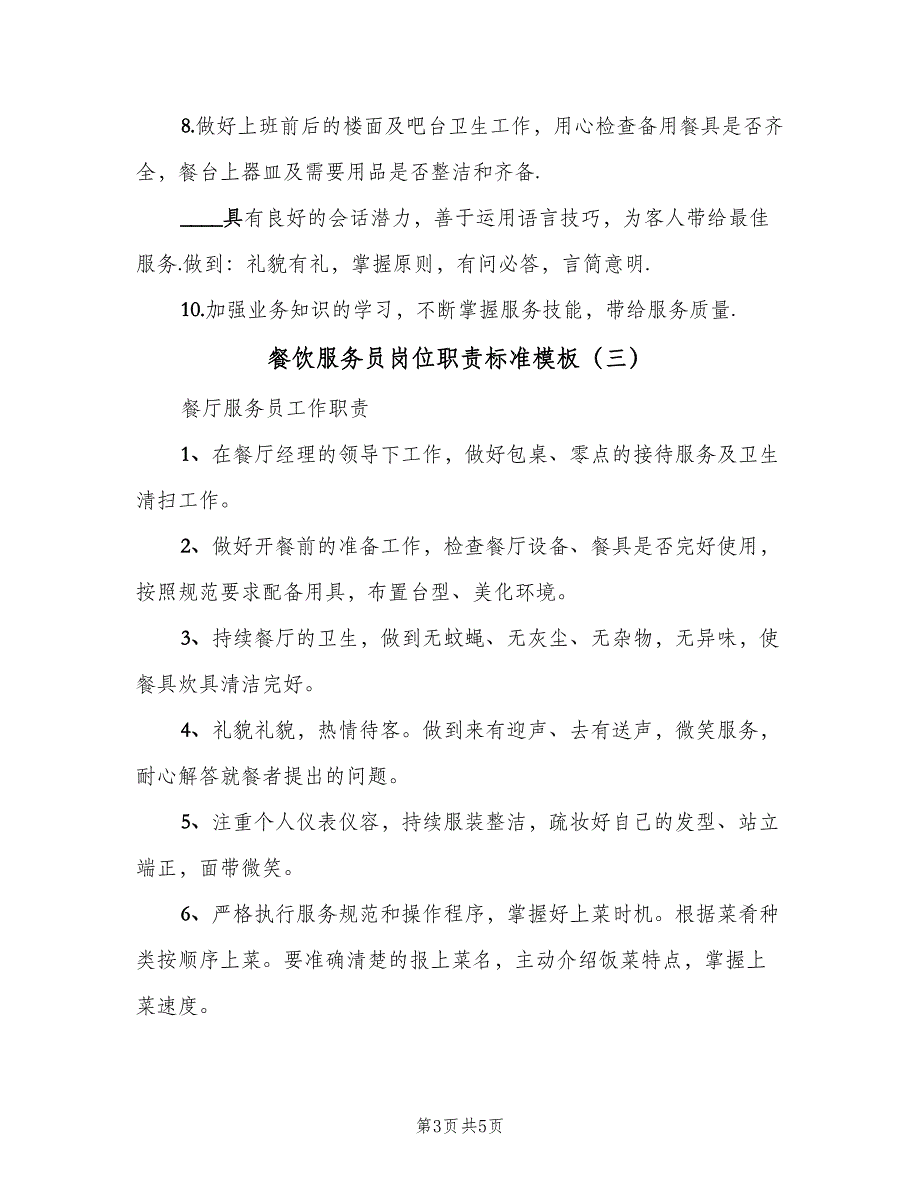 8.做好上班前后的楼面及吧台卫生工作，用心检查备用餐具是否齐
全，餐台上器皿及需要用品是否整洁和齐备.
____具有良好的会话潜力，善于运用语言技巧，为客人带给最佳
服务.做到：礼貌有礼，掌握原则，有问必答，言简意明.
10.加强业务知识的学习，不断掌握服务技能，带给服务质量.
餐饮服务员岗位职责标准模板（三）
餐厅服务员工作职责
1、在餐厅经理的领导下工作，做好包桌、零点的接待服务及卫生
清扫工作。
2、做好开餐前的准备工作，检查餐厅设备、餐具是否完好使用，
按照规范要求配备用具，布置台型、美化环境。
3、持续餐厅的卫生，做到无蚊蝇、无灰尘、无杂物，无异味，使
餐具炊具清洁完好。
4、礼貌礼貌，热情待客。做到来有迎声、去有送声，微笑服务，
耐心解答就餐者提出的问题。
5、注重个人仪表仪容，持续服装整洁，疏妆好自己的发型、站立
端正，面带微笑。
6、严格执行服务规范和操作程序，掌握好上菜时机。根据菜肴种
类按顺序上菜。要准确清楚的报上菜名，主动介绍饭菜特点，掌握上
菜速度。
第3页共5页